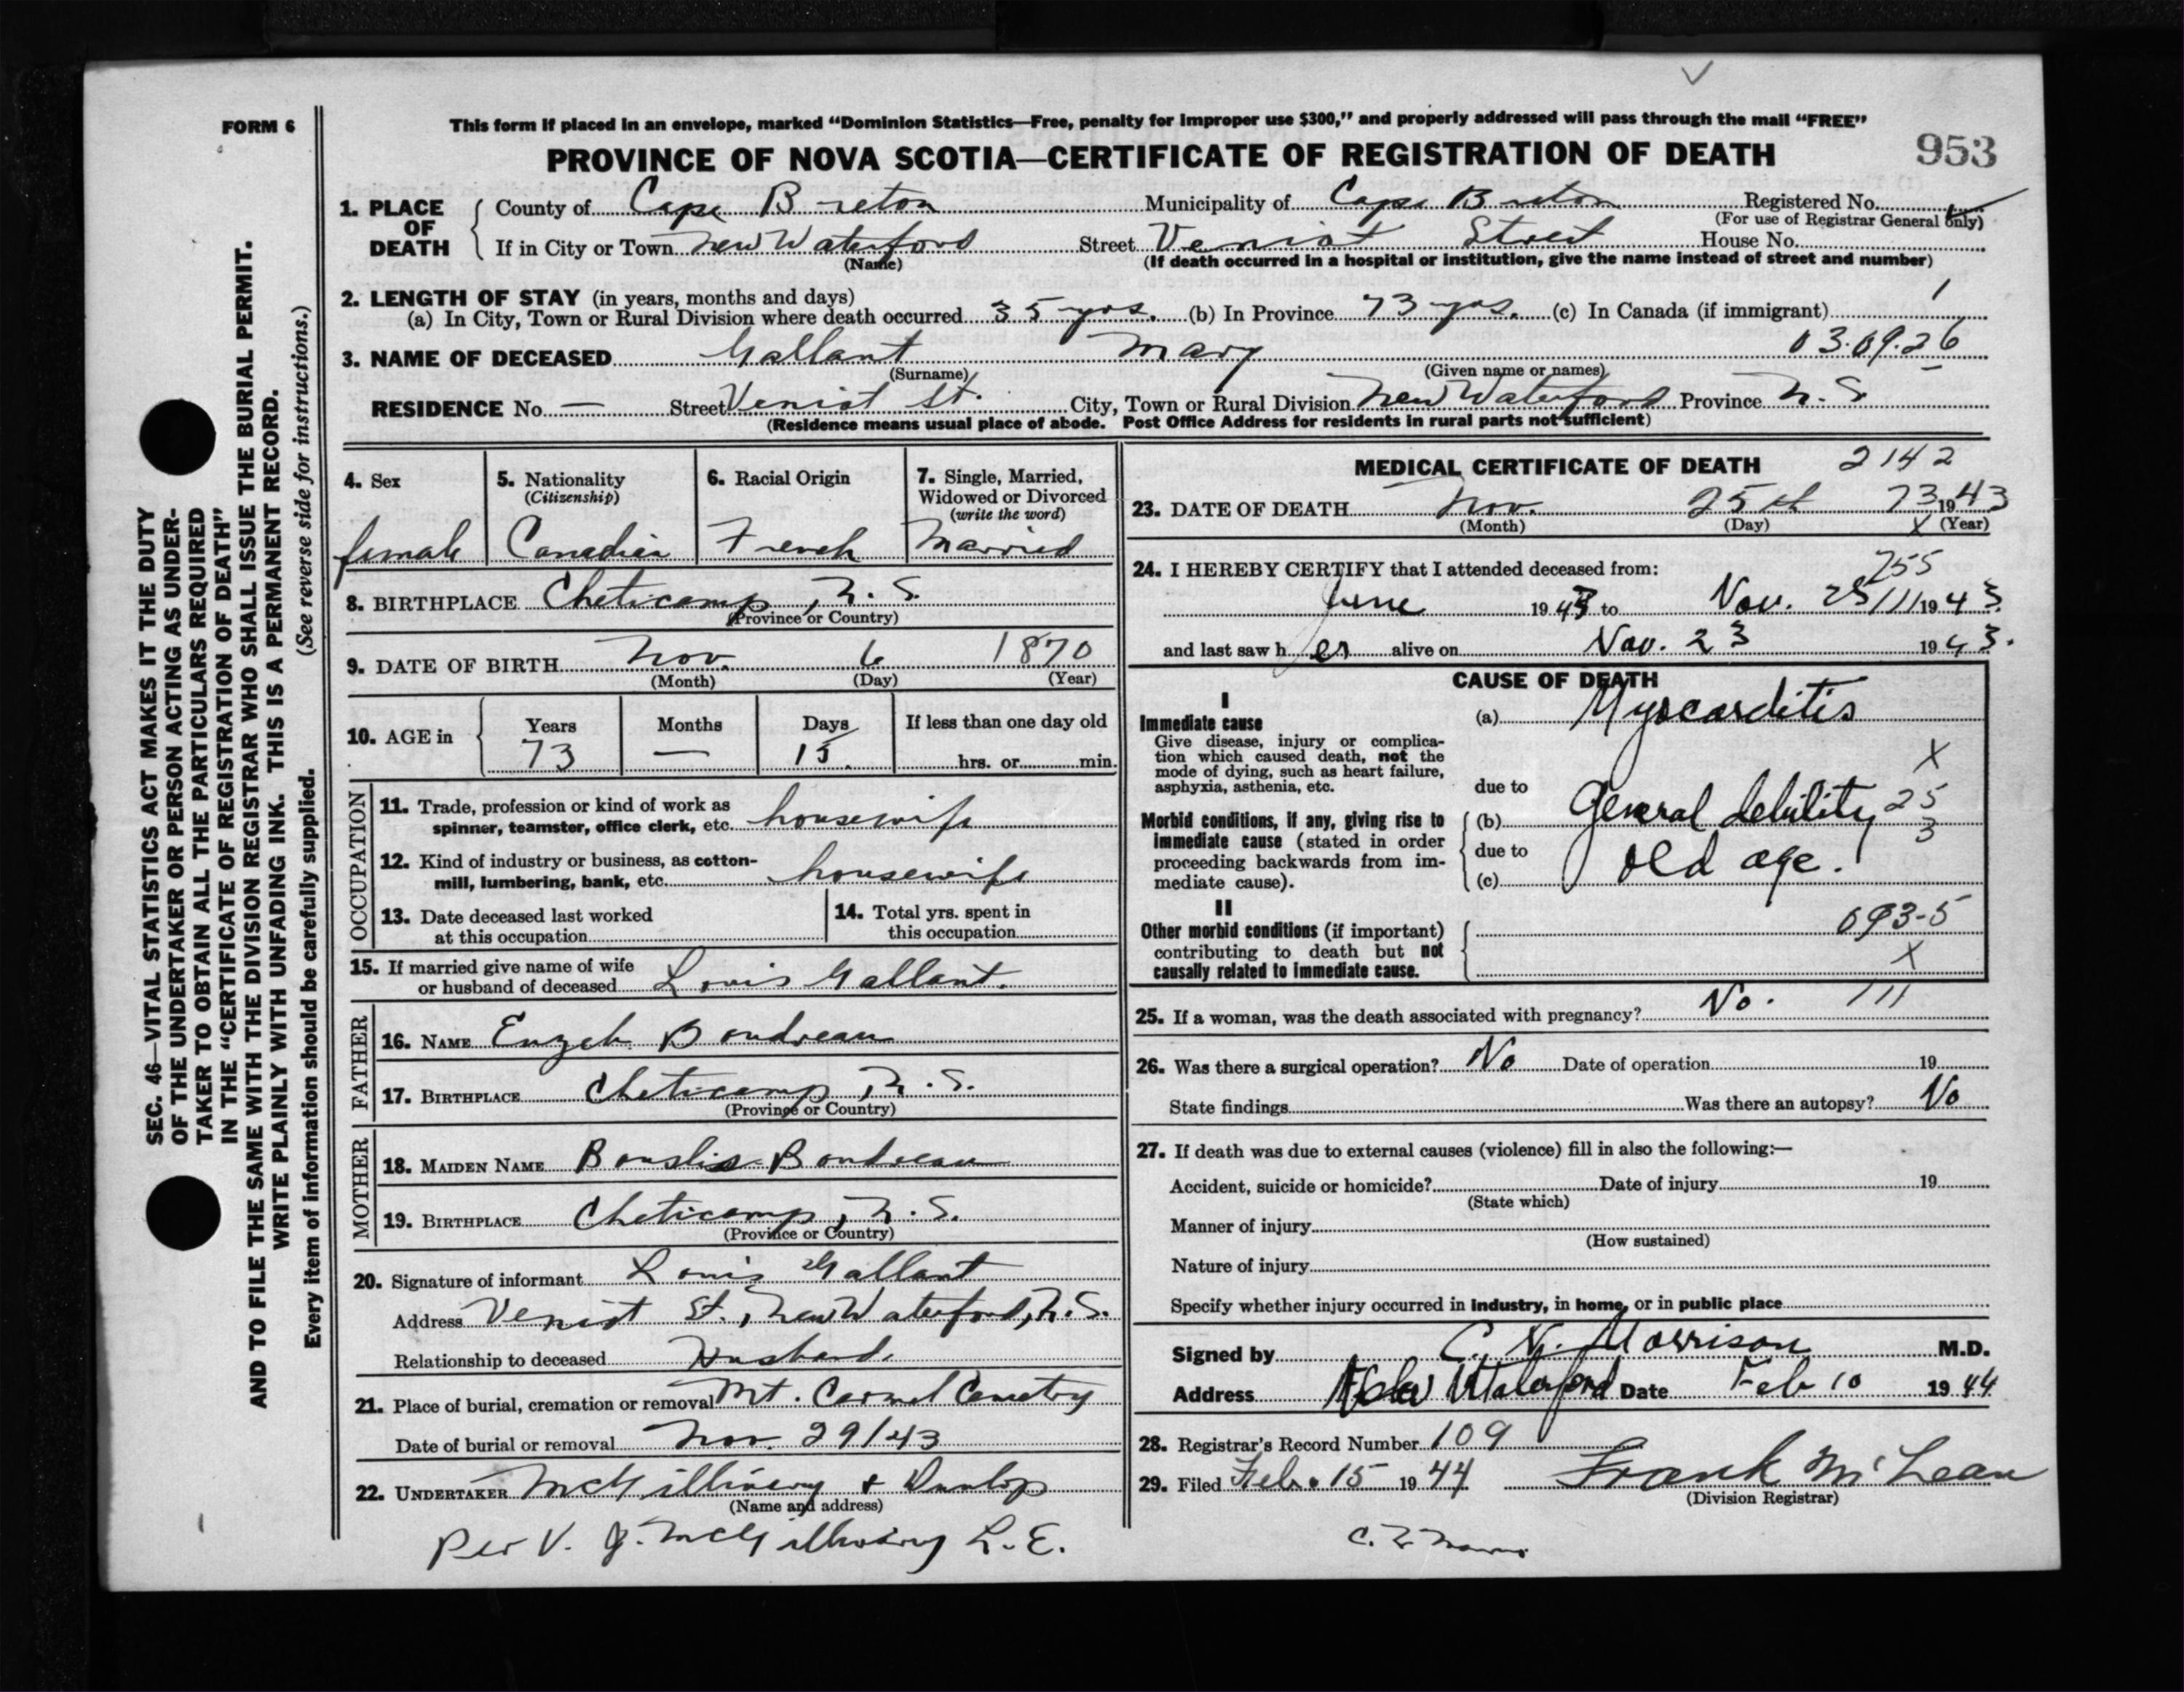 FORM 6
This form if placed in an envelope, marked "Dominion Statistics—Free, penalty for improper use $300," and properly addressed will pass through the mail "FREE"
PROVINCE OF NOVA SCOTIA—CERTIFICATE OF REGISTRATION OF DEATH
953
SEC. 46—VITAL STATISTICS ACT MAKES IT THE DUTY
OF THE UNDERTAKER OR PERSON ACTING AS UNDER-
TAKER TO OBTAIN ALL THE PARTICULARS REQUIRED
IN THE "CERTIFICATE OF REGISTRATION OF DEATH"
AND TO FILE THE SAME WITH THE DIVISION REGISTRAR WHO SHALL ISSUE THE BURIAL PERMIT.
WRITE PLAINLY WITH UNFADING INK. THIS IS A PERMANENT RECORD.
Every item of information should be carefully supplied. (See reverse side for instructions.)
1. PLACE OF DEATH
County of Cape Breton Municipality of Cape Breton Registered No.
(For use of Registrar General only)
If in City or Town New Waterford Street Veniot Street House No.
(Name) (If death occurred in a hospital or institution, give the name instead of street and number)
2. LENGTH OF STAY (in years, months and days)
(a) In City, Town or Rural Division where death occurred 35 yrs. (b) In Province 73 yrs. (c) In Canada (if immigrant)
3. NAME OF DECEASED Gallant Mary 03.09.26
(Surname) (Given name or names)
RESIDENCE No. — Street Veniot St. City, Town or Rural Division New Waterford Province N.S.
(Residence means usual place of abode. Post Office Address for residents in rural parts not sufficient)
4. Sex
female
5. Nationality
(Citizenship)
Canadian
6. Racial Origin
French
7. Single, Married,
Widowed or Divorced
(write the word)
Married
8. BIRTHPLACE Cheticamp, N.S.
(Province or Country)
9. DATE OF BIRTH Nov. 6 1870
(Month) (Day) (Year)
10. AGE in
Years Months Days If less than one day old
73 — 15. hrs. or min.
OCCUPATION
11. Trade, profession or kind of work as
spinner, teamster, office clerk, etc. housewife
12. Kind of industry or business, as cotton-
mill, lumbering, bank, etc. housewife
13. Date deceased last worked
at this occupation
14. Total yrs. spent in
this occupation
15. If married give name of wife
or husband of deceased Louis Gallant.
FATHER
16. NAME Boudreau
17. BIRTHPLACE Cheticamp, N.S.
(Province or Country)
MOTHER
18. MAIDEN NAME Boudreau
19. BIRTHPLACE Cheticamp, N.S.
(Province or Country)
20. Signature of informant Louis Gallant
Address Veniot St., New Waterford, N.S.
Relationship to deceased Husband.
21. Place of burial, cremation or removal Mt. Carmel Cemetry
Date of burial or removal Nov. 29/43
22. UNDERTAKER McGillivary & Dunlop
(Name and address)
Per V. J. McGillivary L.E.
MEDICAL CERTIFICATE OF DEATH 2142
23. DATE OF DEATH Nov. 25th 73 1943
(Month) (Day) X (Year)
24. I HEREBY CERTIFY that I attended deceased from: 255
June 1943 to Nov. 25 111 1943
and last saw her alive on Nov. 23 1943.
CAUSE OF DEATH
I
Immediate cause
Give disease, injury or complica-
tion which caused death, not the
mode of dying, such as heart failure,
asphyxia, asthenia, etc.
(a) Myocarditis
X
due to
Morbid conditions, if any, giving rise to
immediate cause (stated in order
proceeding backwards from im-
mediate cause).
(b) General debility 25
3
due to
(c) old age.
II
Other morbid conditions (if important)
contributing to death but not
causally related to immediate cause.
093-5
X
25. If a woman, was the death associated with pregnancy? No. 111
26. Was there a surgical operation? No Date of operation 19
State findings Was there an autopsy? No
27. If death was due to external causes (violence) fill in also the following:—
Accident, suicide or homicide? Date of injury 19
(State which)
Manner of injury
(How sustained)
Nature of injury
Specify whether injury occurred in industry, in home, or in public place
Signed by C. N. Morrison M.D.
Address New Waterford Date Feb 10 1944
28. Registrar's Record Number 109
29. Filed Feb. 15 1944 Frank McLean
(Division Registrar)